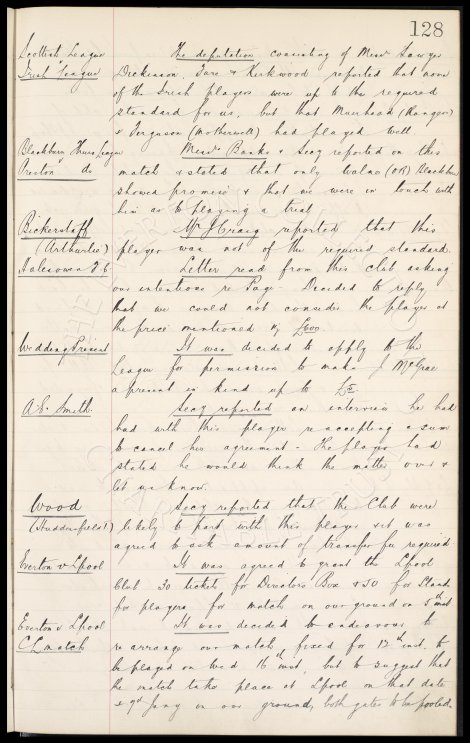 128
Scottish League The deputation consisting of Messrs Sawyer
Irish League Dickinson, Tare & Kirkwood reported that none
of the Irish players were up to the required
standard for us, but that Muirhead (Rangers)
& Ferguson (Motherwell) had played well
Blackburn Thurs. League Messrs Banks & Secy reported on this
v
Preston do match & stated that only (OR) Blackburn
showed promise & that we were in touch with
him as to playing a trial
Bickerstaff Mr J Craig reported that this
(Arthurlie) player was not of the required standard.
Halesowen F.C Letter read from this club asking
our intentions re Page - Decided to reply
that we could not consider the players at
the price mentioned viz £600
Wedding Present It was decided to apply to the
League for permission to make J McGrae
a present in kind up to £5
A.E. Smith Secy reported an interview he had
had with this player re accepting a sum
to cancel his agreement - The player had
stated he would think the matter over &
let us know.
Wood Secy reported that the Club were
(Huddersfield) likely to part with this player & it was
agreed to ask amount of transfer fee required
Everton v Lpool It was agreed to grant the Lpool
Club 30 tickets for Directors Box & 50 for Stand
for players for match on our ground on 5th inst
Everton v Lpool It was decided to endeavour to
C L match re arrange our match fixed for 12th inst. to
be played on Wed 16th inst, but to suggest that
the match take place at Lpool on that date
& 9d Jany on our ground, both gates to be pooled.